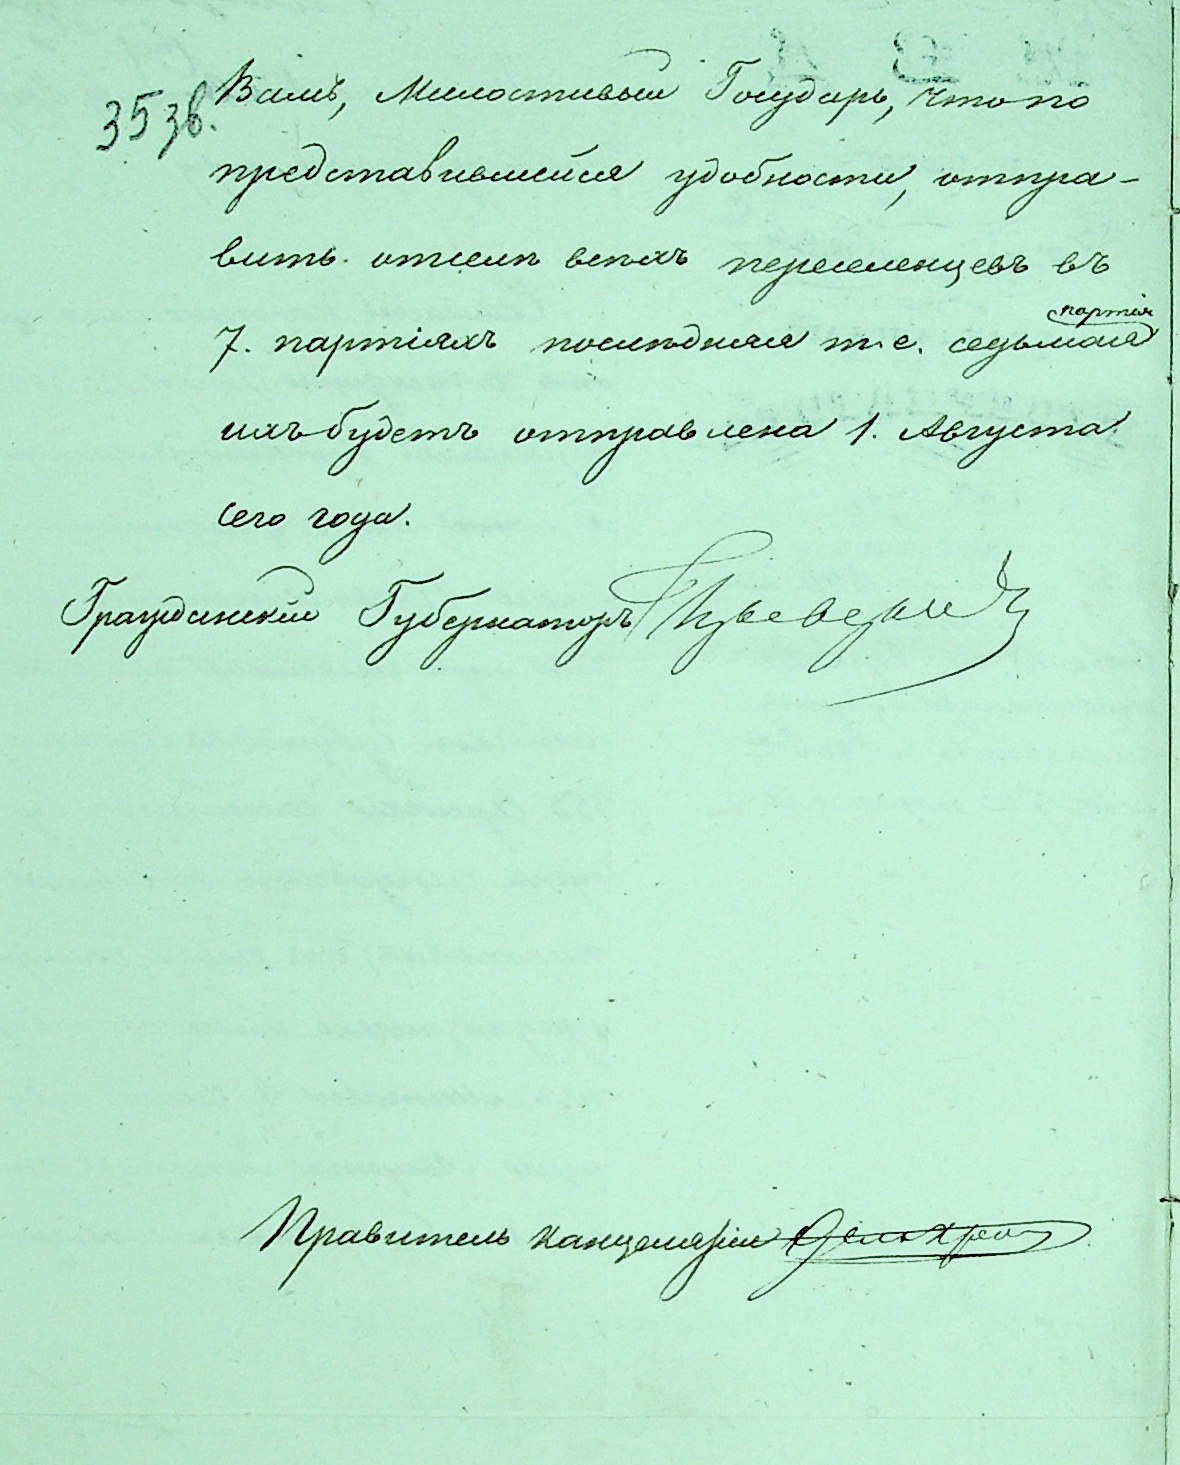 35 зв.
Вамъ, Милостивый Государь, что по
представившейся удобности, отпра-
вить отселѣ всѣхъ переселенцевъ въ
7. партіяхъ послѣдняя т. е. седьмая партія
ихъ будетъ отправлена 1. Августа
сего года.
Гражданскій Губернаторъ
Правитель канцеляріи